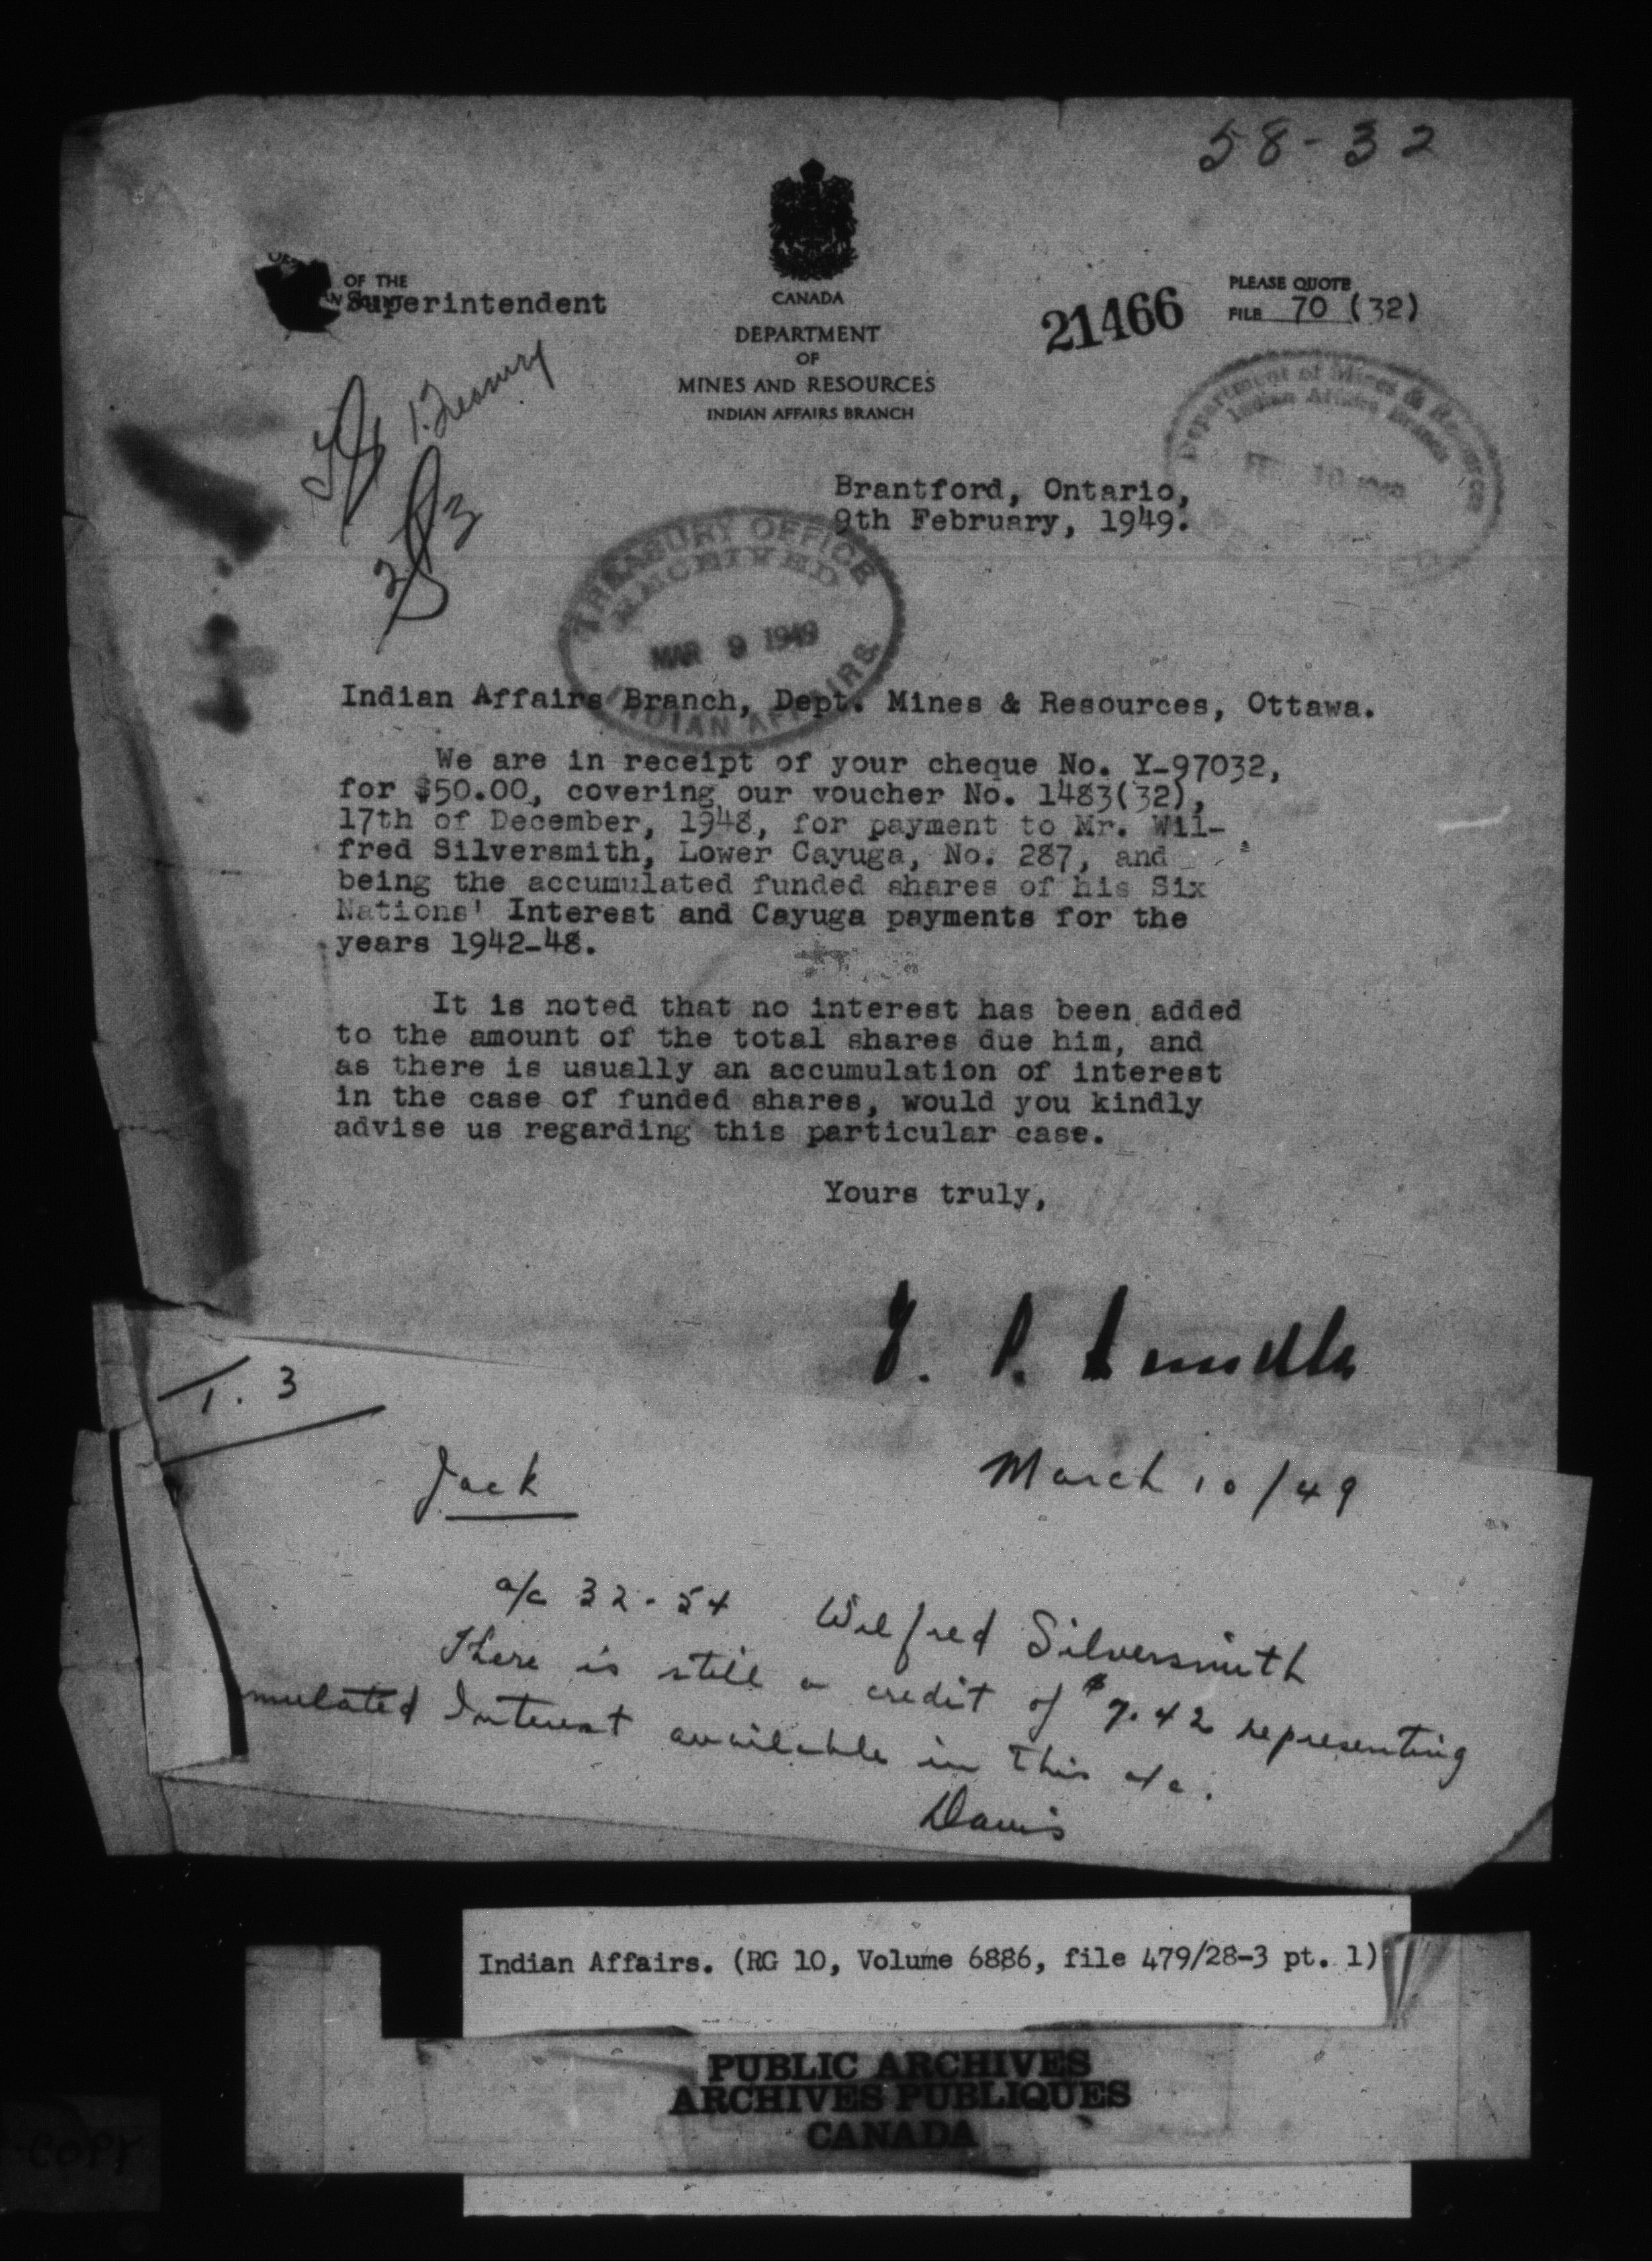 58-32
OF THE
Superintendent
CANADA
DEPARTMENT
OF
MINES AND RESOURCES
INDIAN AFFAIRS BRANCH
21466
PLEASE QUOTE
FILE 70 (32)
1. Treasury
Department of Mines & Resources
Indian Affairs Branch
10
Brantford, Ontario,
9th February, 1949.
TREASURY OFFICE
RECEIVED
MAR 9 1949
INDIAN AFFAIRS
Indian Affairs Branch, Dept. Mines & Resources, Ottawa.
We are in receipt of your cheque No. Y-97032,
for $50.00, covering our voucher No. 1483(32),
17th of December, 1948, for payment to Mr. Wil-
fred Silversmith, Lower Cayuga, No. 287, and
being the accumulated funded shares of his Six
Nations' Interest and Cayuga payments for the
years 1942-48.
It is noted that no interest has been added
to the amount of the total shares due him, and
as there is usually an accumulation of interest
in the case of funded shares, would you kindly
advise us regarding this particular case.
Yours truly,
T. 3
Jack
March 10/49
a/c 32-54 Wilfred Silversmith
There is still a credit of $7.42 representing
mulated Interest available in this a/c.
Davis
Indian Affairs. (RG 10, Volume 6886, file 479/28-3 pt. 1)
PUBLIC ARCHIVES
ARCHIVES PUBLIQUES
CANADA
COPY